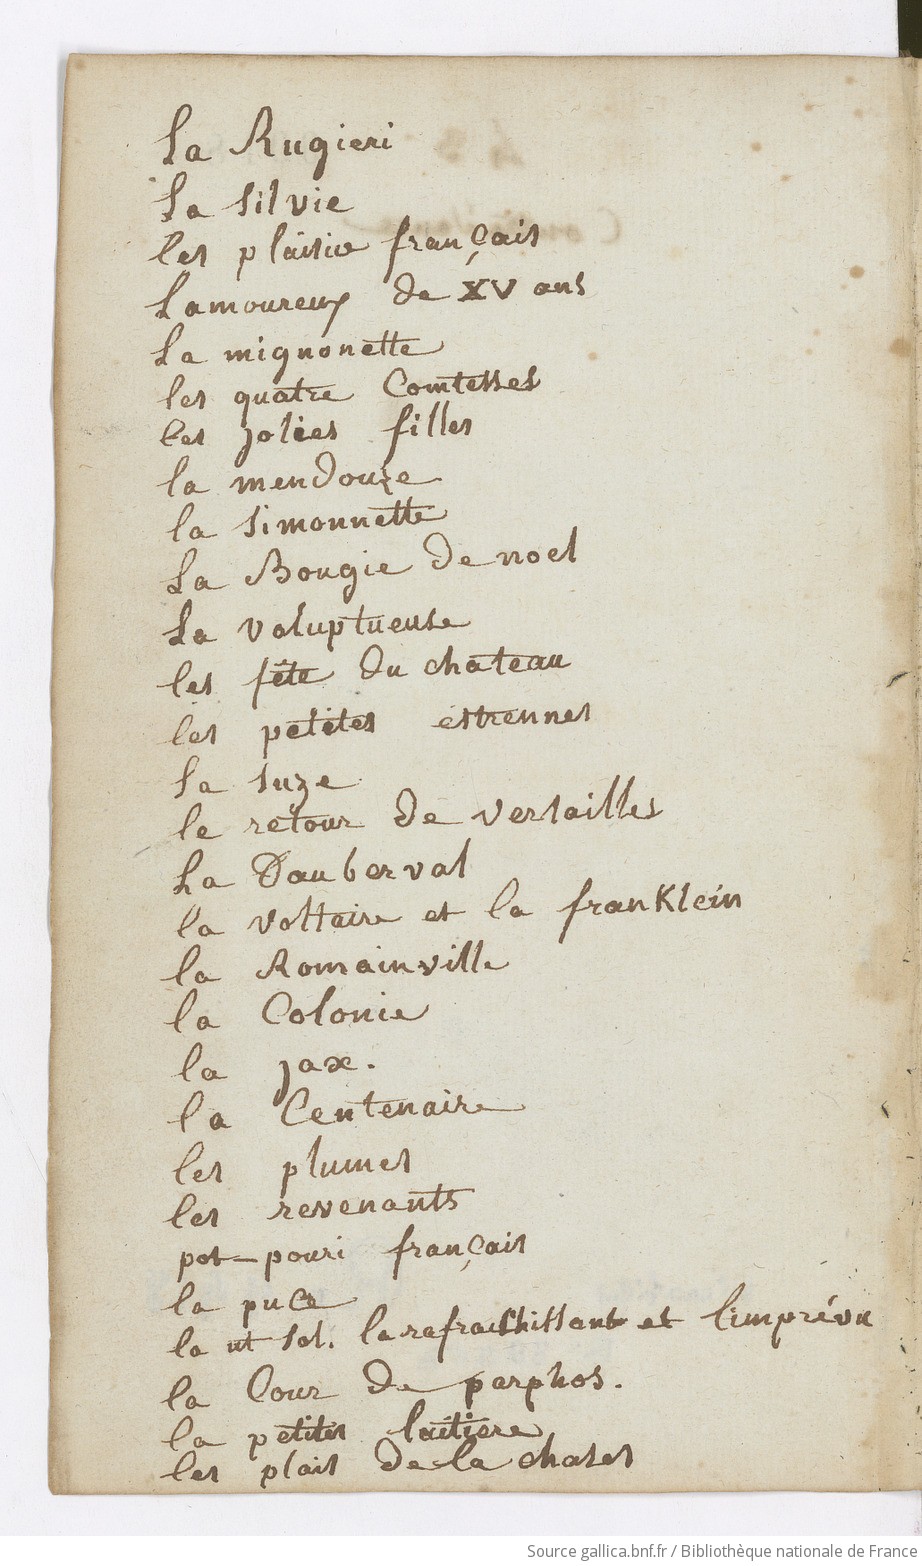 La Rugieri
La silvie
les plaisir français
Lamoureux de XV ans
La mignonette
les quatre Comtesses
les jolies filles
la mendouze
la simonnette
La Bougie de noel
La voluptueuse
les fête du chateau
les petites éstrennes
la suze
le retour de versailles
La Dauberval
la voltaire et la franklein
la Romainville
la Colonie
la jax.
la Centenaire
les plumes
les revenants
pot-pouri français
la puce
la ut sol. la rafraichissant et l'imprévu
la Cour de parphos.
la petites laitiere
les plais de la chases
Source gallica.bnf.fr / Bibliothèque nationale de France